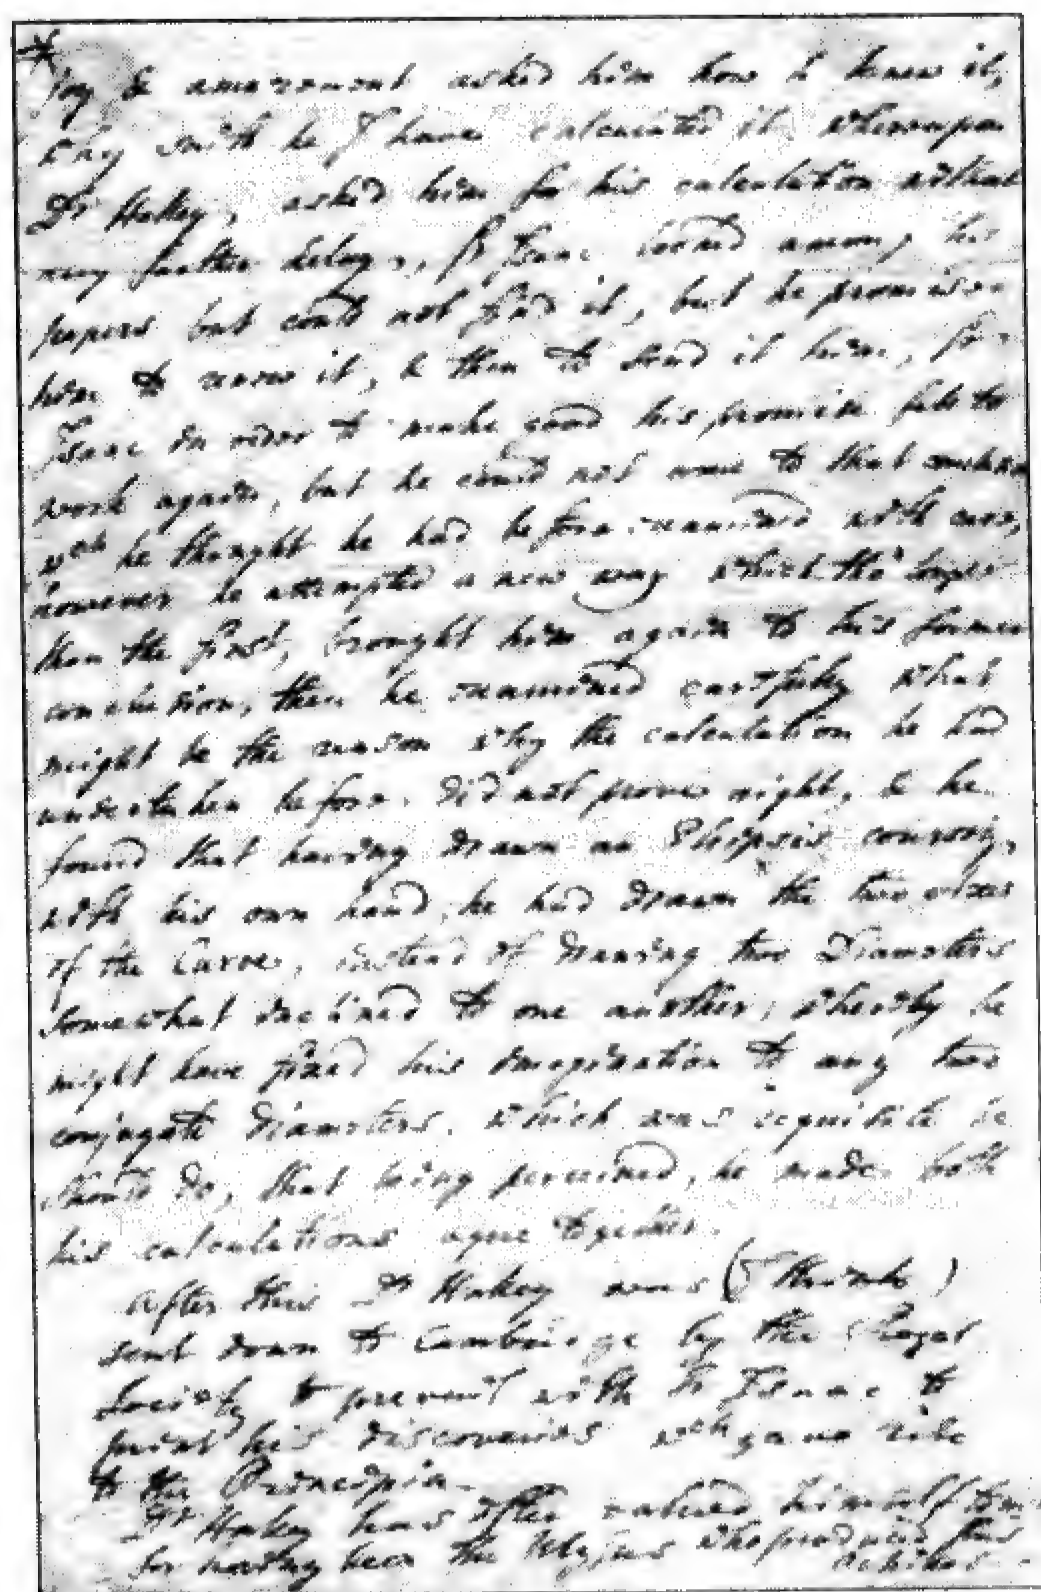 joy & amazement asked him how he knew it,
why saith he I have calculated it whereupon
Dr Halley, asked him for his calculation without
any farther delay, Sr Isaac looked among his
papers but could not find it, but he promised
him to renew it, & then to send it him, Sr
Isaac in order to make good his promise fell to
work again, but he could not come to that conclusion
wch he thought he had before examined with care,
however he attempted a new way which tho' longer
than the first, brought him again to his former
conclusion, then he examined carefully what
might be the reason why the calculation he had
undertaken before. did not prove right, & he
found that having drawn an Elipsis coursely,
with his own hand, he had drawn the two axes
of the Curve, instead of drawing two Diameters
somewhat inclined to one another, whereby he
might have fixed his imagination to any two
conjugate diameters. which was requisite he
should do, that being perceived, he made both
his calculations agree together.
after this Dr Halley was (I think)
sent down to Cambridge by the Royal
Society to prevail with Sr Isaac to
print his discoveries wch gave rise
to the Principia.
Dr Halley has often valued himself to me
for having been the Ulysses who produced this
Achilles